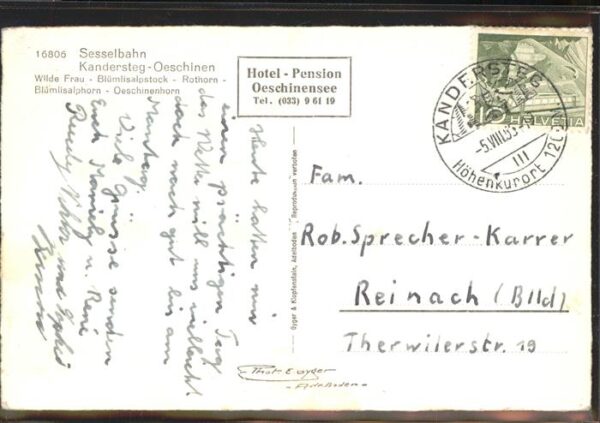 16806 Sesselbahn
Kandersteg-Oeschinen
Wilde Frau - Blümlisalpstock - Rothorn -
Blümlisalphorn - Oeschinenhorn
Hotel - Pension
Oeschinensee
Tel. (033) 9 61 19
Heute hatten wir
einen prächtigen Tag
das Wetter will uns vielleicht
doch noch gut bis am
Montag
Viele Grüsse senden
Euch u. René
und
Gyger & Klopfenstein, Adelboden Reproduktion verboten
Photo E. Gyger
- Adelboden -
HELVETIA
KANDERSTEG
-5.VIII.53-
III
Höhenkurort 120
Fam.
Rob. Sprecher-Karrer
Reinach (Blld)
Therwilerstr. 19